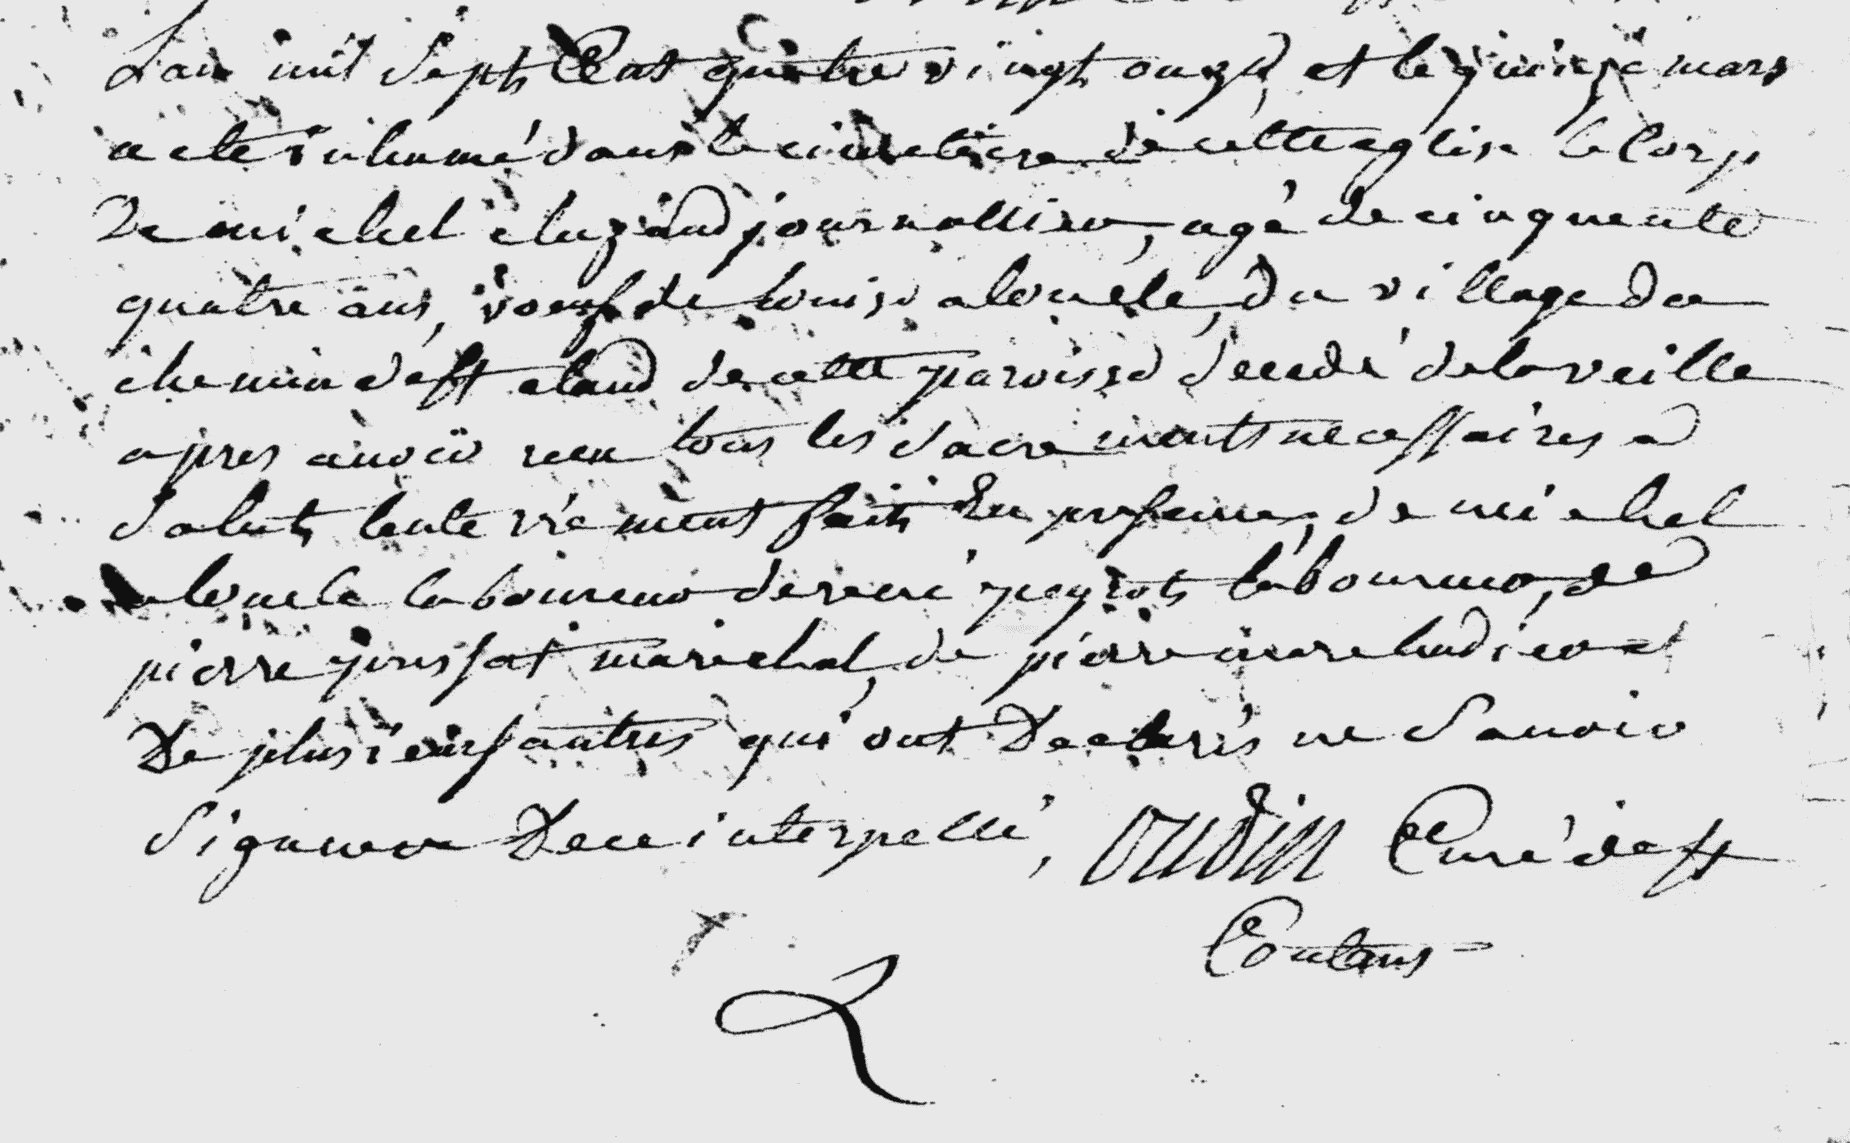 Lan mil Sept Cent quatre vingt onze, et le quinze mars
a eté inhumé dans le cimetiere de cette eglise le Corp
De michel cluzaud journallier, agé de cinquente
quatre ans, voeuf de louise alouele, du village du
chemin d'est claud de cette paroisse décedé de la veille
apres avoir recu tous les Sacrements necessaires a
Salut, lenterrément fait En presence, de michel
alouele laboureur de rené peyrot laboureur, de
pierre marechal, de pierre et
De plusieurs autres qui ont Declarés ne Savoir
Signer De ce interpellé, oudin Curé dest
Coulans